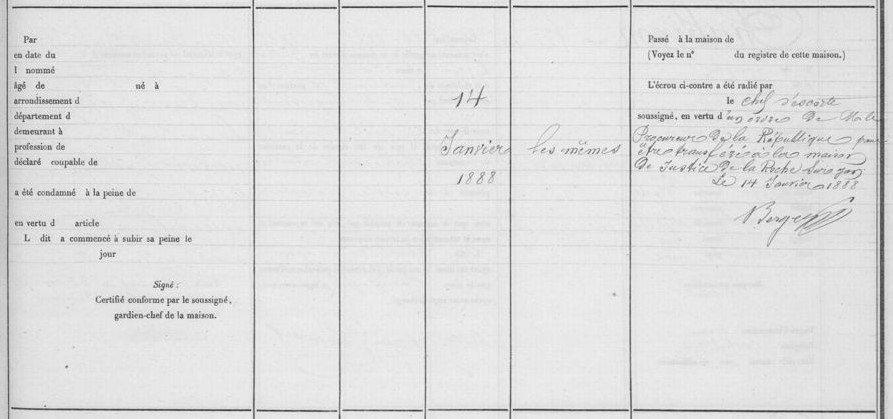 Par
en date du
l nommé
âgé de né à
arrondissement d
département d
demeurant à
profession de
déclaré coupable de
a été condamné à la peine de
en vertu d article
L dit a commencé à subir sa peine le
jour
Signé :
Certifié conforme par le soussigné,
gardien-chef de la maison.
14
Janvier
1888
les mêmes
Passé à la maison de
(Voyez le n° du registre de cette maison.)
L'écrou ci-contre a été radié par
le chef d'escorte
soussigné, en vertu d'un ordre de M. le
Procureur de la République pour
être transféré à la maison
de Justice de la Roche sur yon
Le 14 Janvier 1888